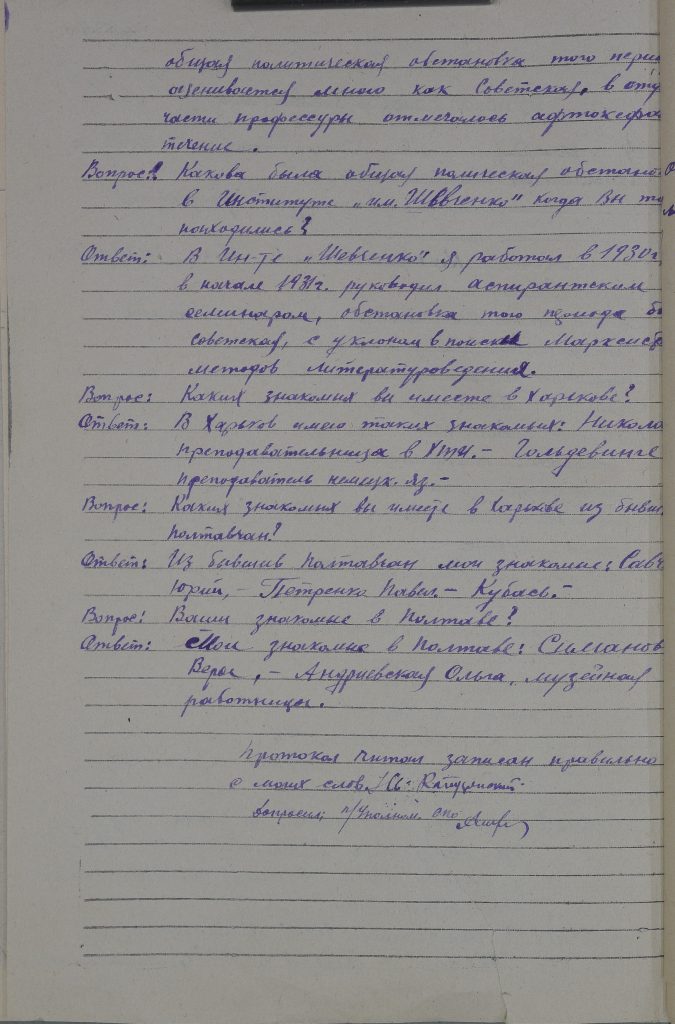 общая политическая обстановка того перио
оценивается мною как Советская, в отд
части профессуры отмечалось
течение.
Вопрос: Какова была общая полическая обстано
в Институте „им. Шевченко" когда Вы та
находились?
Ответ: В Ин-те „Шевченко" я работал в 1930 г
в начале 1931 г. руководил аспирантским
семинаром, обстановка того периода бы
советская, с уклоном в поиски Марксист
методов литературоведения.
Вопрос: Каких знакомых вы имеете в Харькове?
Ответ: В Харьков имею таких знакомых: Никола
преподавательница в — Гольдевинге
преподаватель немецк. яз. —
Вопрос: Каких знакомых вы имеете в Харькове из бывш.
полтавчан?
Ответ: Из бывшив полтавчан мои знакомые: Савч
Юрий, — Петренко Павел. — Кубась. —
Вопрос: Ваши знакомые в Полтаве?
Ответ: Мои знакомые в Полтаве:
Вера, — Андриевская Ольга, музейная
работница.
Протокол читал записан правильно
с моих слов
Допросил: п/Уполном. СПО